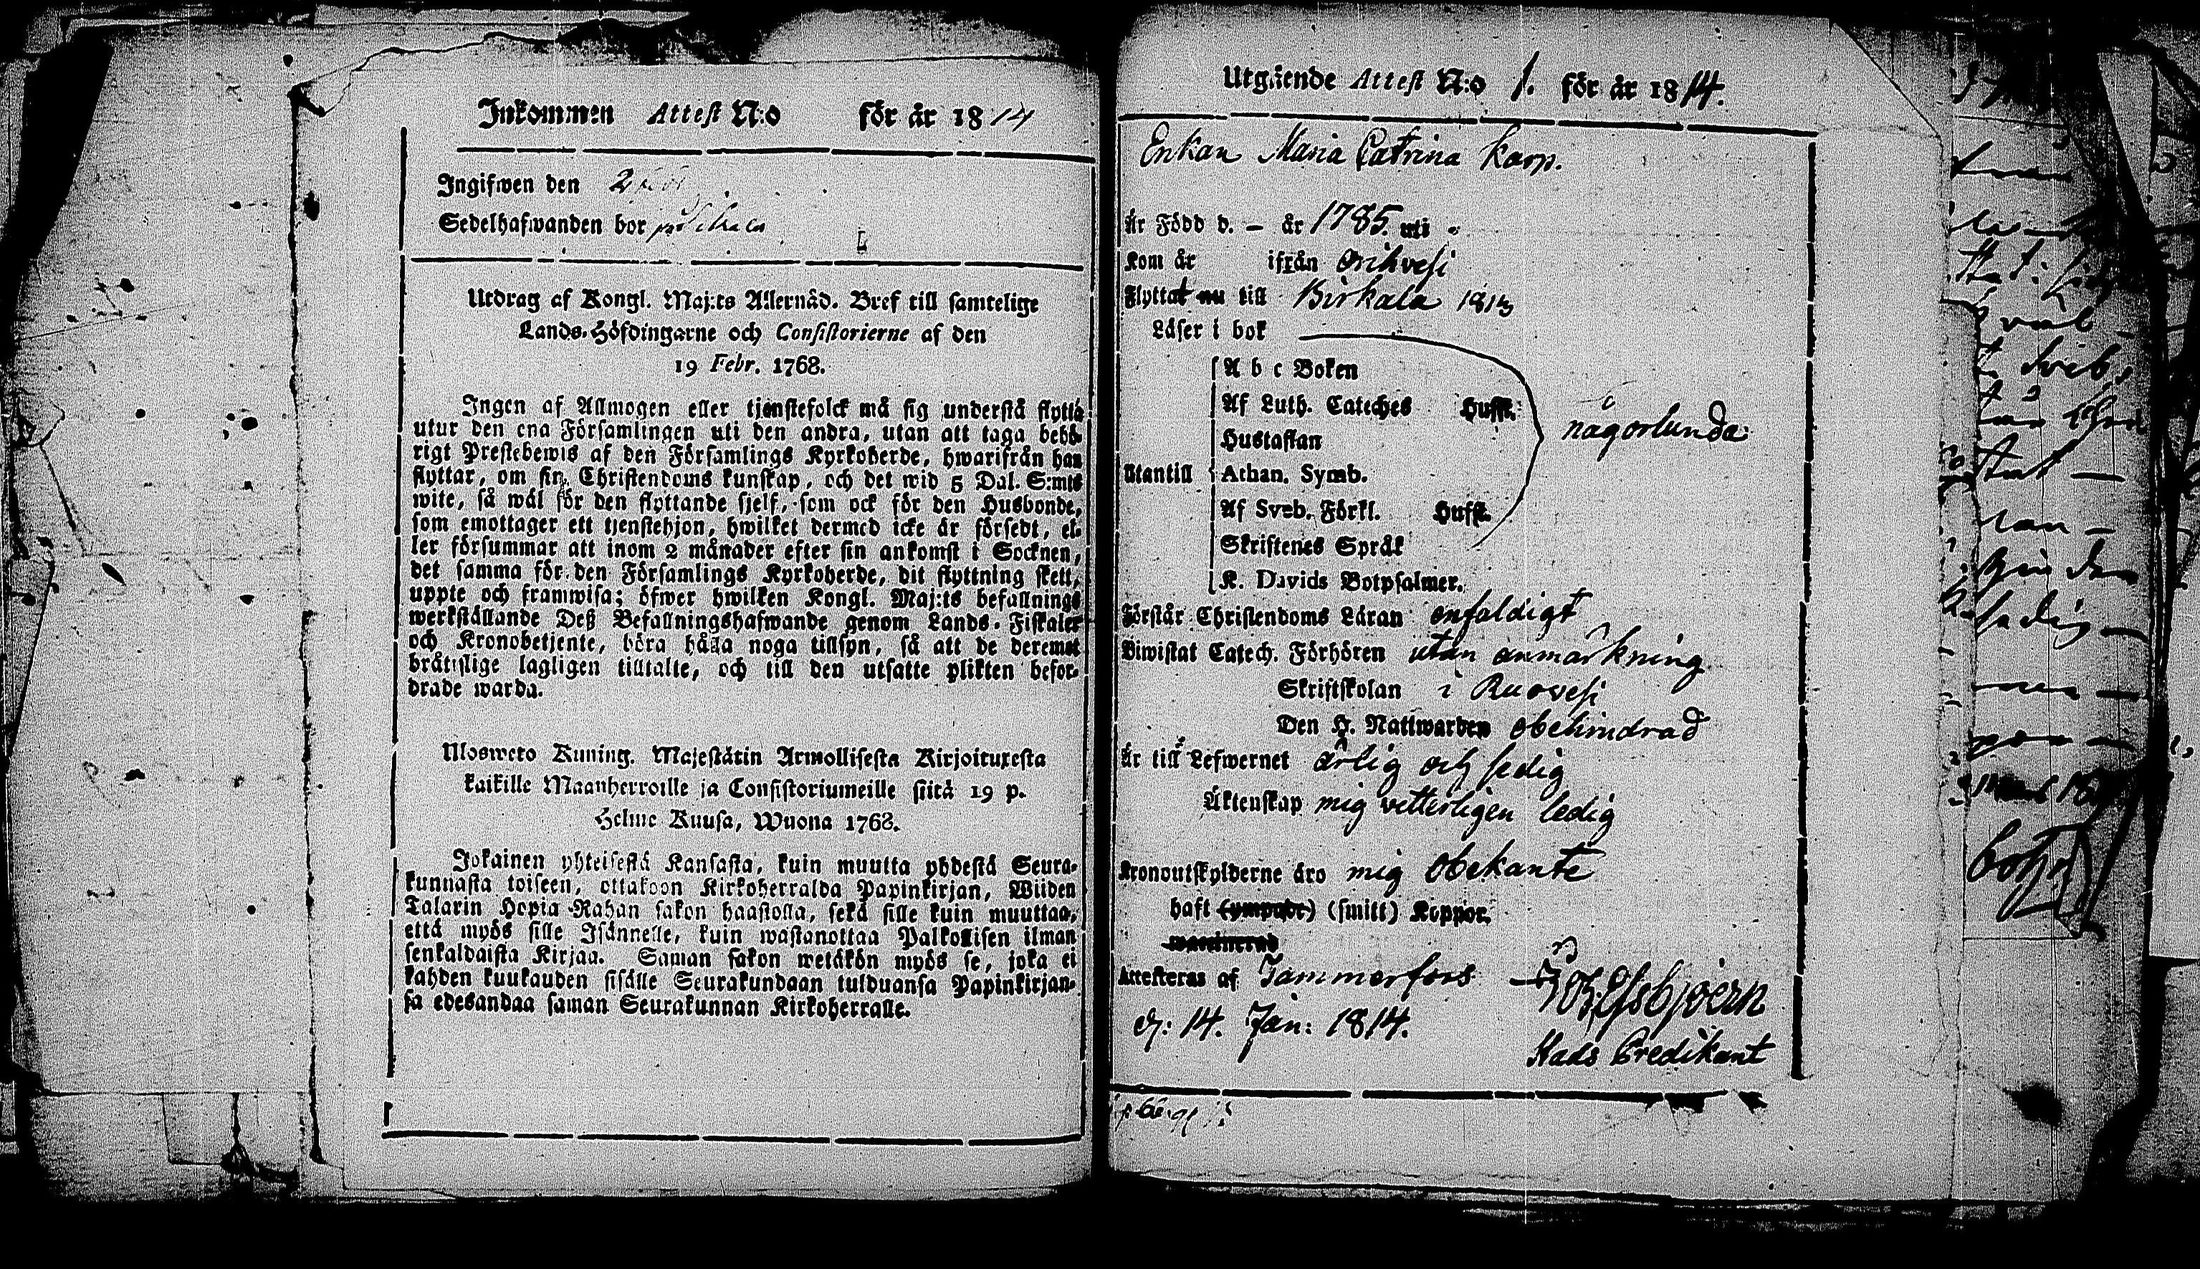 Inkommen Attest N:o för år 1814
Ingifwen den 2
Sedelhafwanden bor
Utdrag af Kongl. Maj:ts Allernåd. Bref till samtelige
Lands-Höfdingarne och Consistorierne af den
19 Febr. 1768.
Ingen af Allmogen eller tjenstefolck må sig understå flytta
utur den ena Församlingen uti den andra, utan att taga behö-
rigt Prestebewis af den Församlings Kyrkoherde, hwarifrån han
flyttar, om sin Christendoms kunskap, och det wid 5 Dal. S:mts
wite, så wäl för den flyttande sjelf, som ock för den Husbonde,
som emottager ett tjenstehjon, hwilket dermed icke är försedt, el-
ler försummar att inom 2 månader efter sin ankomst i Socknen,
det samma för den Församlings Kyrkoherde, dit flyttning skett,
uppte och framwisa; öfwer hwilken Kongl. Maj:ts befallnings
werkställande Deß Befallningshafwande genom Lands-Fiskaler
och Kronobetjente, böra hålla noga tillsyn, så att de deremot
bråtislige lagligen tilltalte, och till den utsatte plikten befor-
drade warda.
Ulosweto Kuning. Majestätin Armollisesta Kirjoituxesta
kaikille Maanherroille ja Consistoriumeille siitä 19 p.
Helme Kuusa, Wuona 1768.
Jokainen yhteisestä Kansasta, kuin muutta yhdestä Seura-
kunnasta toiseen, ottakoon Kirkoherralda Papinkirjan, Wiiden
Talarin Hopia Rahan sakon haastolla, sekä sille kuin muuttaa,
että myös sille Isännelle, kuin wastanottaa Palkollisen ilman
senkaldaista Kirjaa. Saman sakon wetäkön myös se, joka ei
kahden kuukauden sisälle Seurakundaan tulduansa Papinkirjan-
sa edesandaa saman Seurakunnan Kirkoherralle.
Utgående Attest N:o 1. för år 1814.
Enkan Maria Catrina Karp.
Är Född d. – år 1785. uti
Kom år ifrån Orihvesi
Flyttat nu till Birkala 1813
Läser i bok
A b c Boken
Af Luth. Cateches Hufst.
Hustaflan
någorlunda
Utantill Athan. Symb.
Af Sveb. Förkl. Hufst.
Skriftenes Språk
K. Davids Botpsalmer.
Förstår Christendoms Läran enfaldigt
Biwistat Catech. Förhören utan anmärkning
Skriftskolan i Ruovesi
Den H. Nattwarden obehindrad
Är till Lefwernet ärlig och sedig
Äktenskap mig vetterligen ledig
Kronoutskylderne äro mig obekante
haft (ympade) (smitt) Koppor.
waccinerad
Attesteras af Tammerfors
d: 14. Jan: 1814.
Stads Predikant